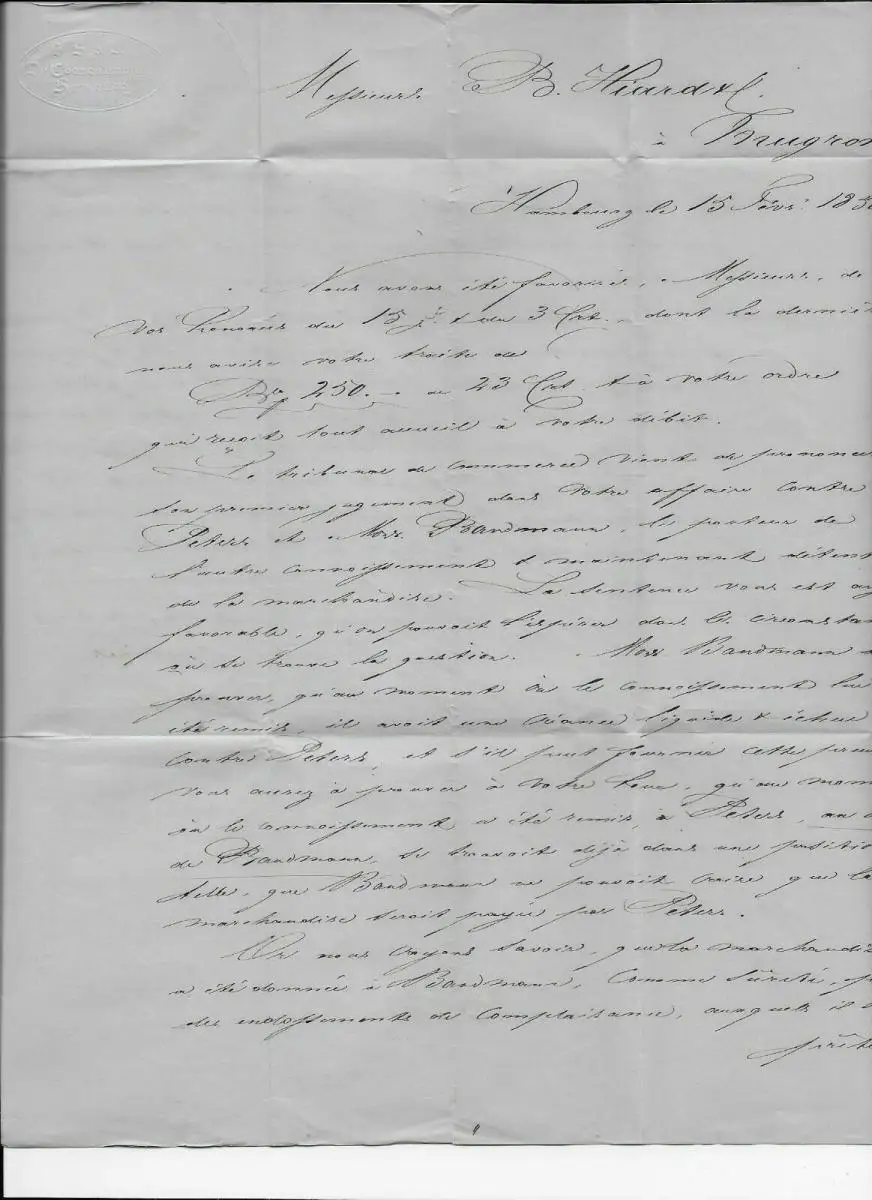 Messieurs B. Hiard & C.
à Mugron
Hambourg le 15 Févr. 185
Nous avons été favorisés, Messieurs, de
vos honorées du 15 & du 3 Crt., dont la derniè
nous avise votre traite de
250. – au 23 Crt. & à votre ordre
qui reçoit tout accueil à votre débit.
Le tribunal de commerce vient de prononcer
son premier jugement dans votre affaire contre
Peters et Mor. Bandmann, le porteur de
l'autre connoissement & maintenant détent
de la marchandise. La sentence vous est au
favorable, qu'on pouvoit l'espérer dans les circonstan
où se trouve la question. Mor Bandmann
prouver, qu'au moment où le connoissement lui
été remis, il avoit une créance liquide & échue
contre Peters, et s'il peut fournir cette preu
vous aurez à prouver à votre tour, qu'au mom
où le connoissement a été remis, à Peters,
de Bandmann, se trouvoit déjà dans une positio
telle, que Bandmann ne pouvoit croire que la
marchandise seroit payée par Peters.
Or nous croyons savoir, que la marchandis
a été donnée à Bandmann, comme sûreté,
des endossements de complaisance, auxquels il
prêté